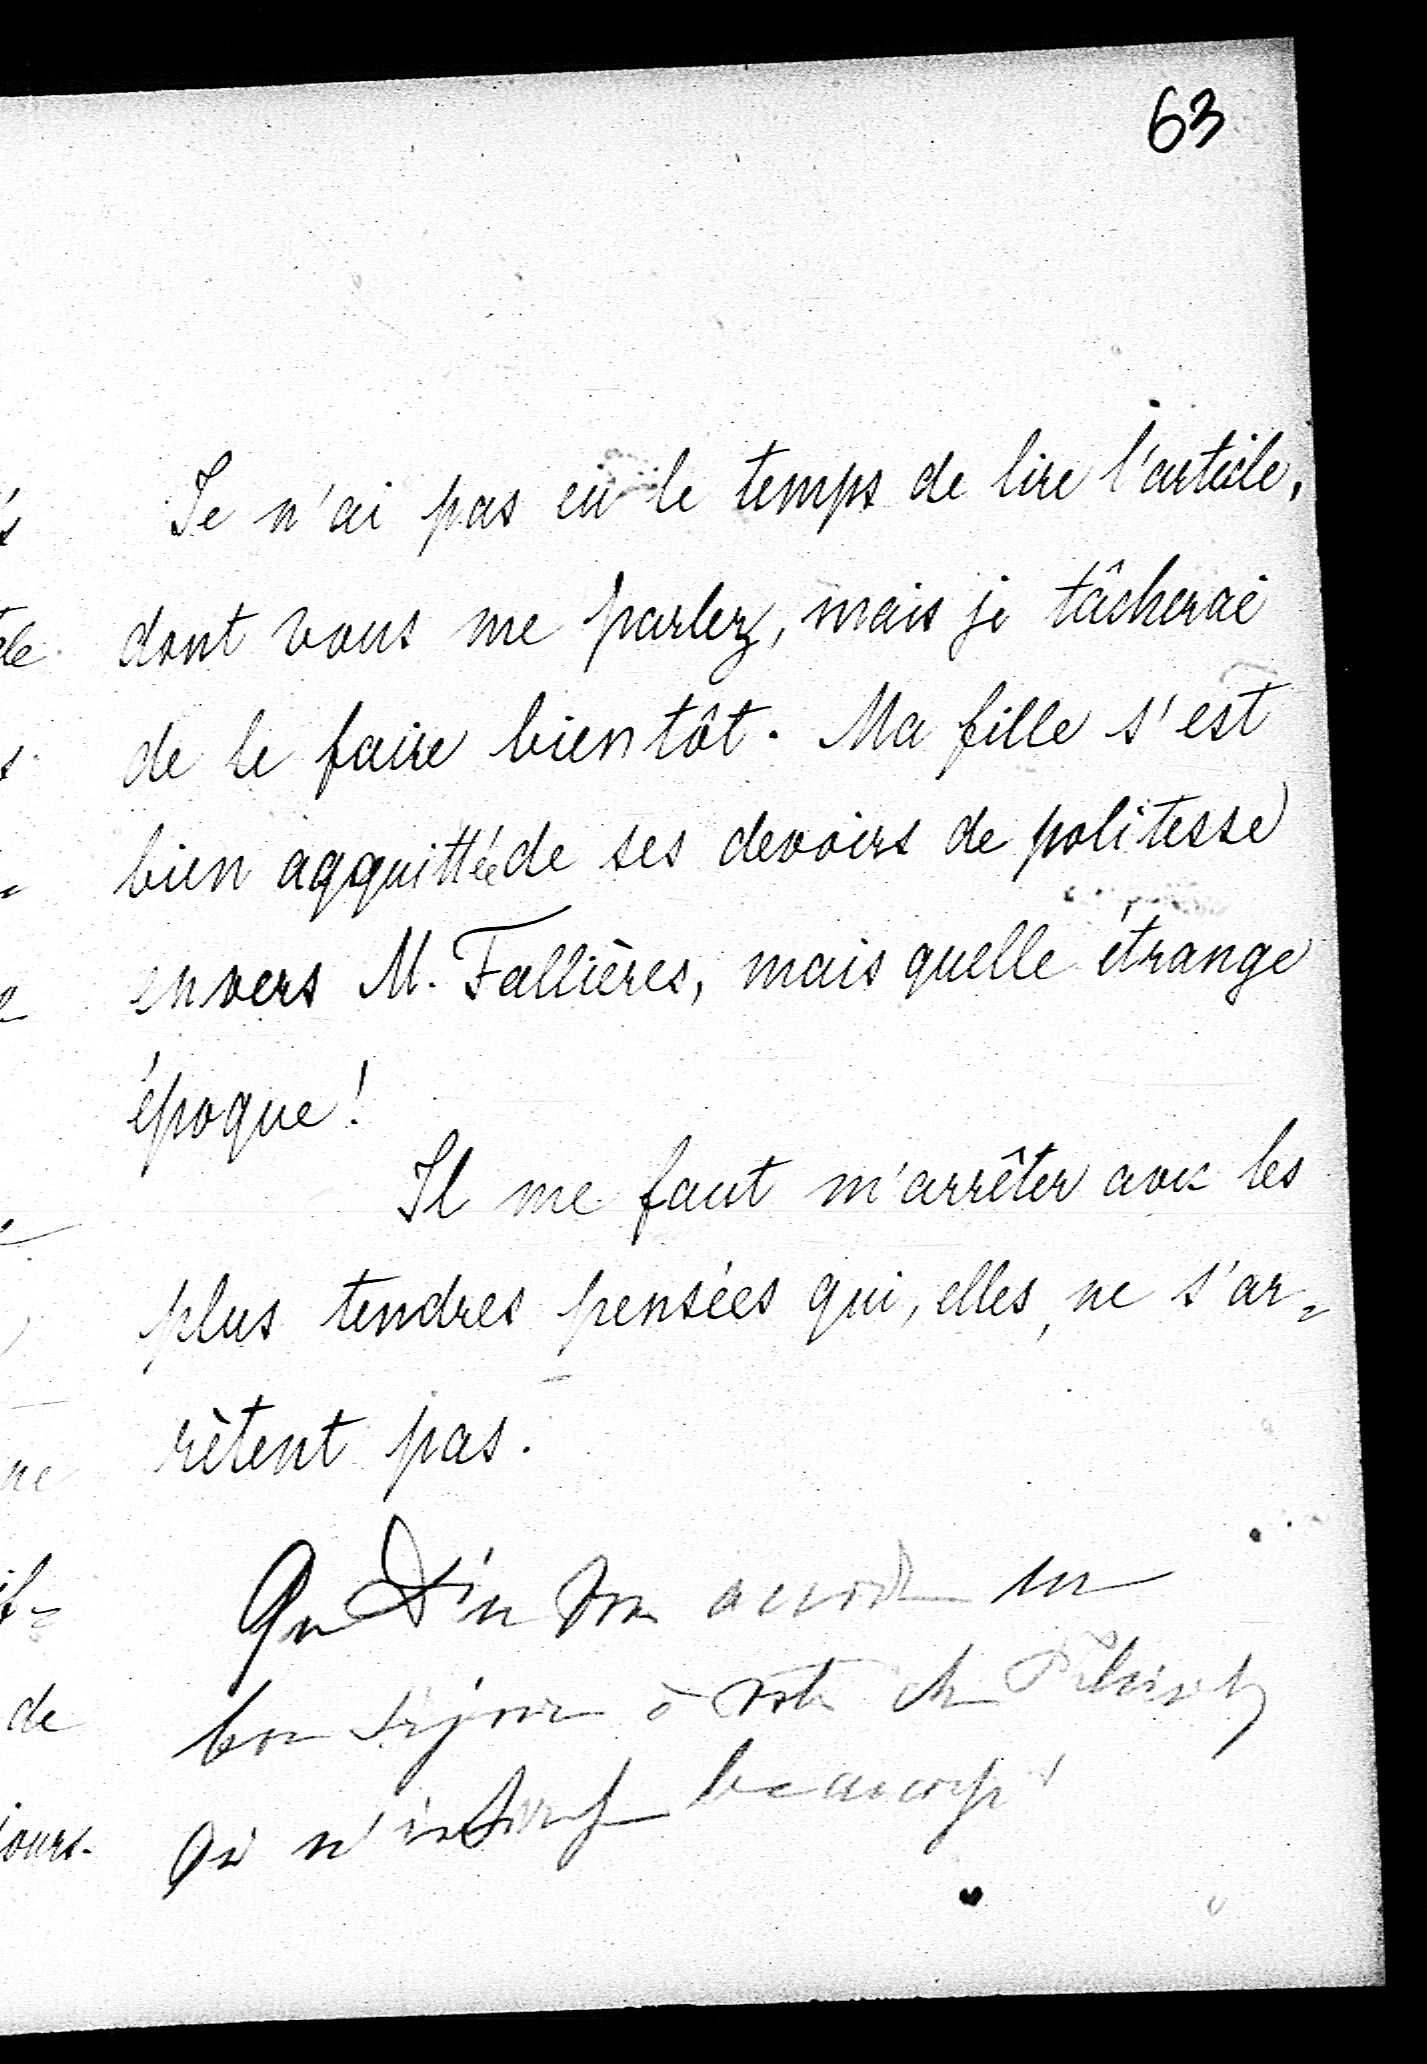 63
Je n'ai pas eu le temps de lire l'article,
dont vous me parlez, mais je tâcherai
de le faire bientôt. Ma fille s'est
bien aqquittée de ses devoirs de politesse
envers M. Fallières, mais quelle étrange
époque!
Il me faut m'arrêter avec les
plus tendres pensées qui, elles, ne s'ar-
rêtent pas.
Que Dieu vous accorde un
bon séjour à votre cher
qui m'intéresse beaucoup!
de
jours.